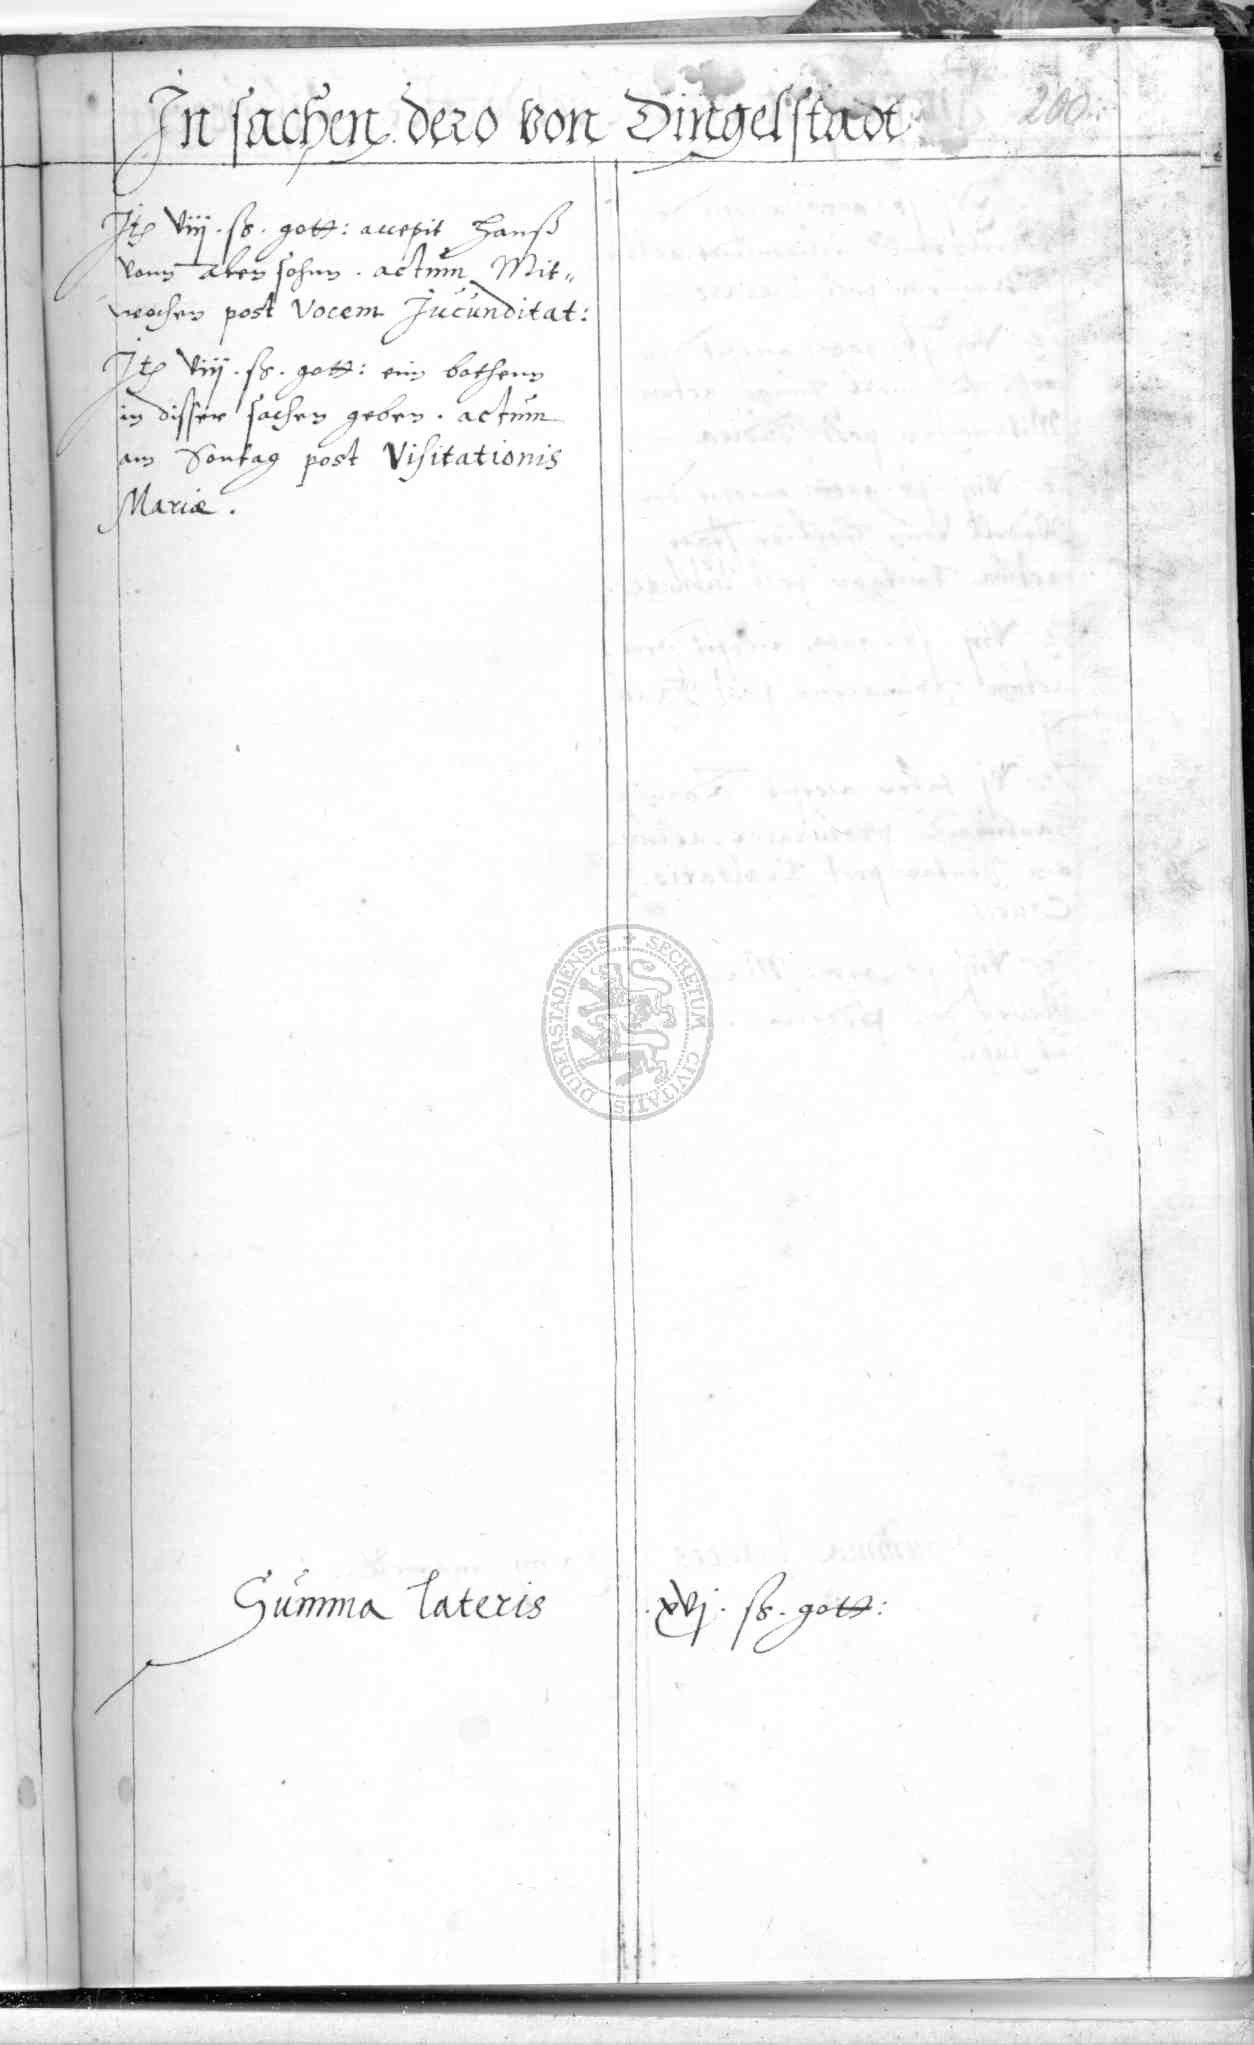 In sachen dero von Dingelstadt
200
Jt viij. ß. gott: accepit Hanß
vonn aken sohnn. actum Mit-
wochen post Vocem Jucunditat:
Jt viij. ß. gott: eim bothenn
in disser sachen geben. actum
am Sontag post Visitationis
Mariæ.
SECRETUM CIVITATIS DUDERSTADIENSIS
Summa lateris .xvj. ß. gott: